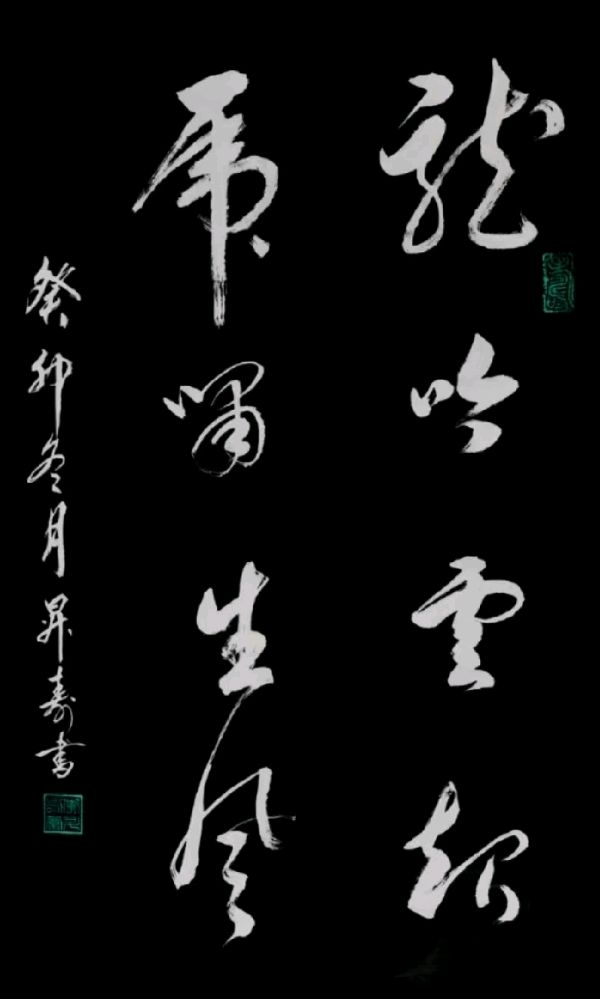 龍吟雲起
虎嘯生風
癸卯冬月昇壽書